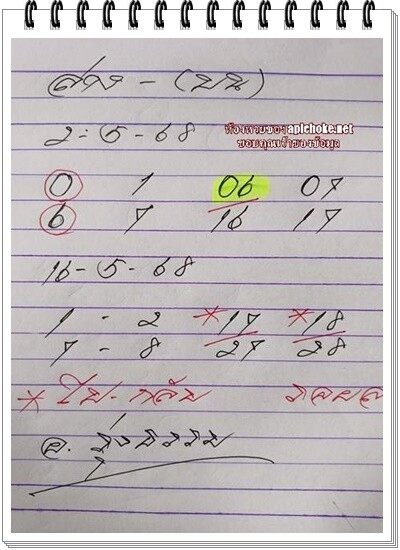 ล่าง - (บน)
2-5-68
ห้องหวยของ apichoke.net
ขอบคุณเจ้าของข้อมูล
0 1 06 07
6 7 16 17
16-5-68
1 - 2 *17 *18
7 - 8 27 28
* ไป-กลับ
อ. รุ่ง